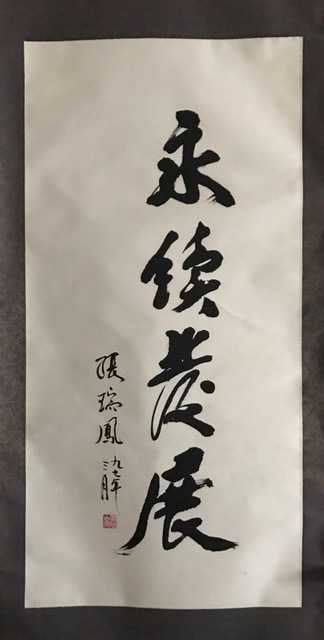 永續發展
張瑞鳳
九七年
三月